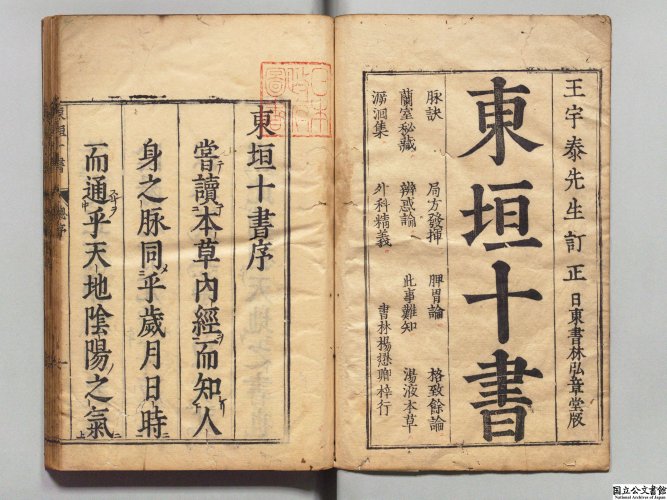 王宇泰先生訂正 日東書林弘章堂版
東垣十書
脉訣 局方發揮 脾胃論 格致餘論
蘭室秘藏 辨惑論 此事難知 湯液本草
溯洄集 外科精義 書林楊懋卿梓行
東垣十書序
甞讀本草內經而知人
身之脉同乎歲月日時
而通乎天地陰陽之氣
東垣十書 序
国立公文書館
National Archives of Japan